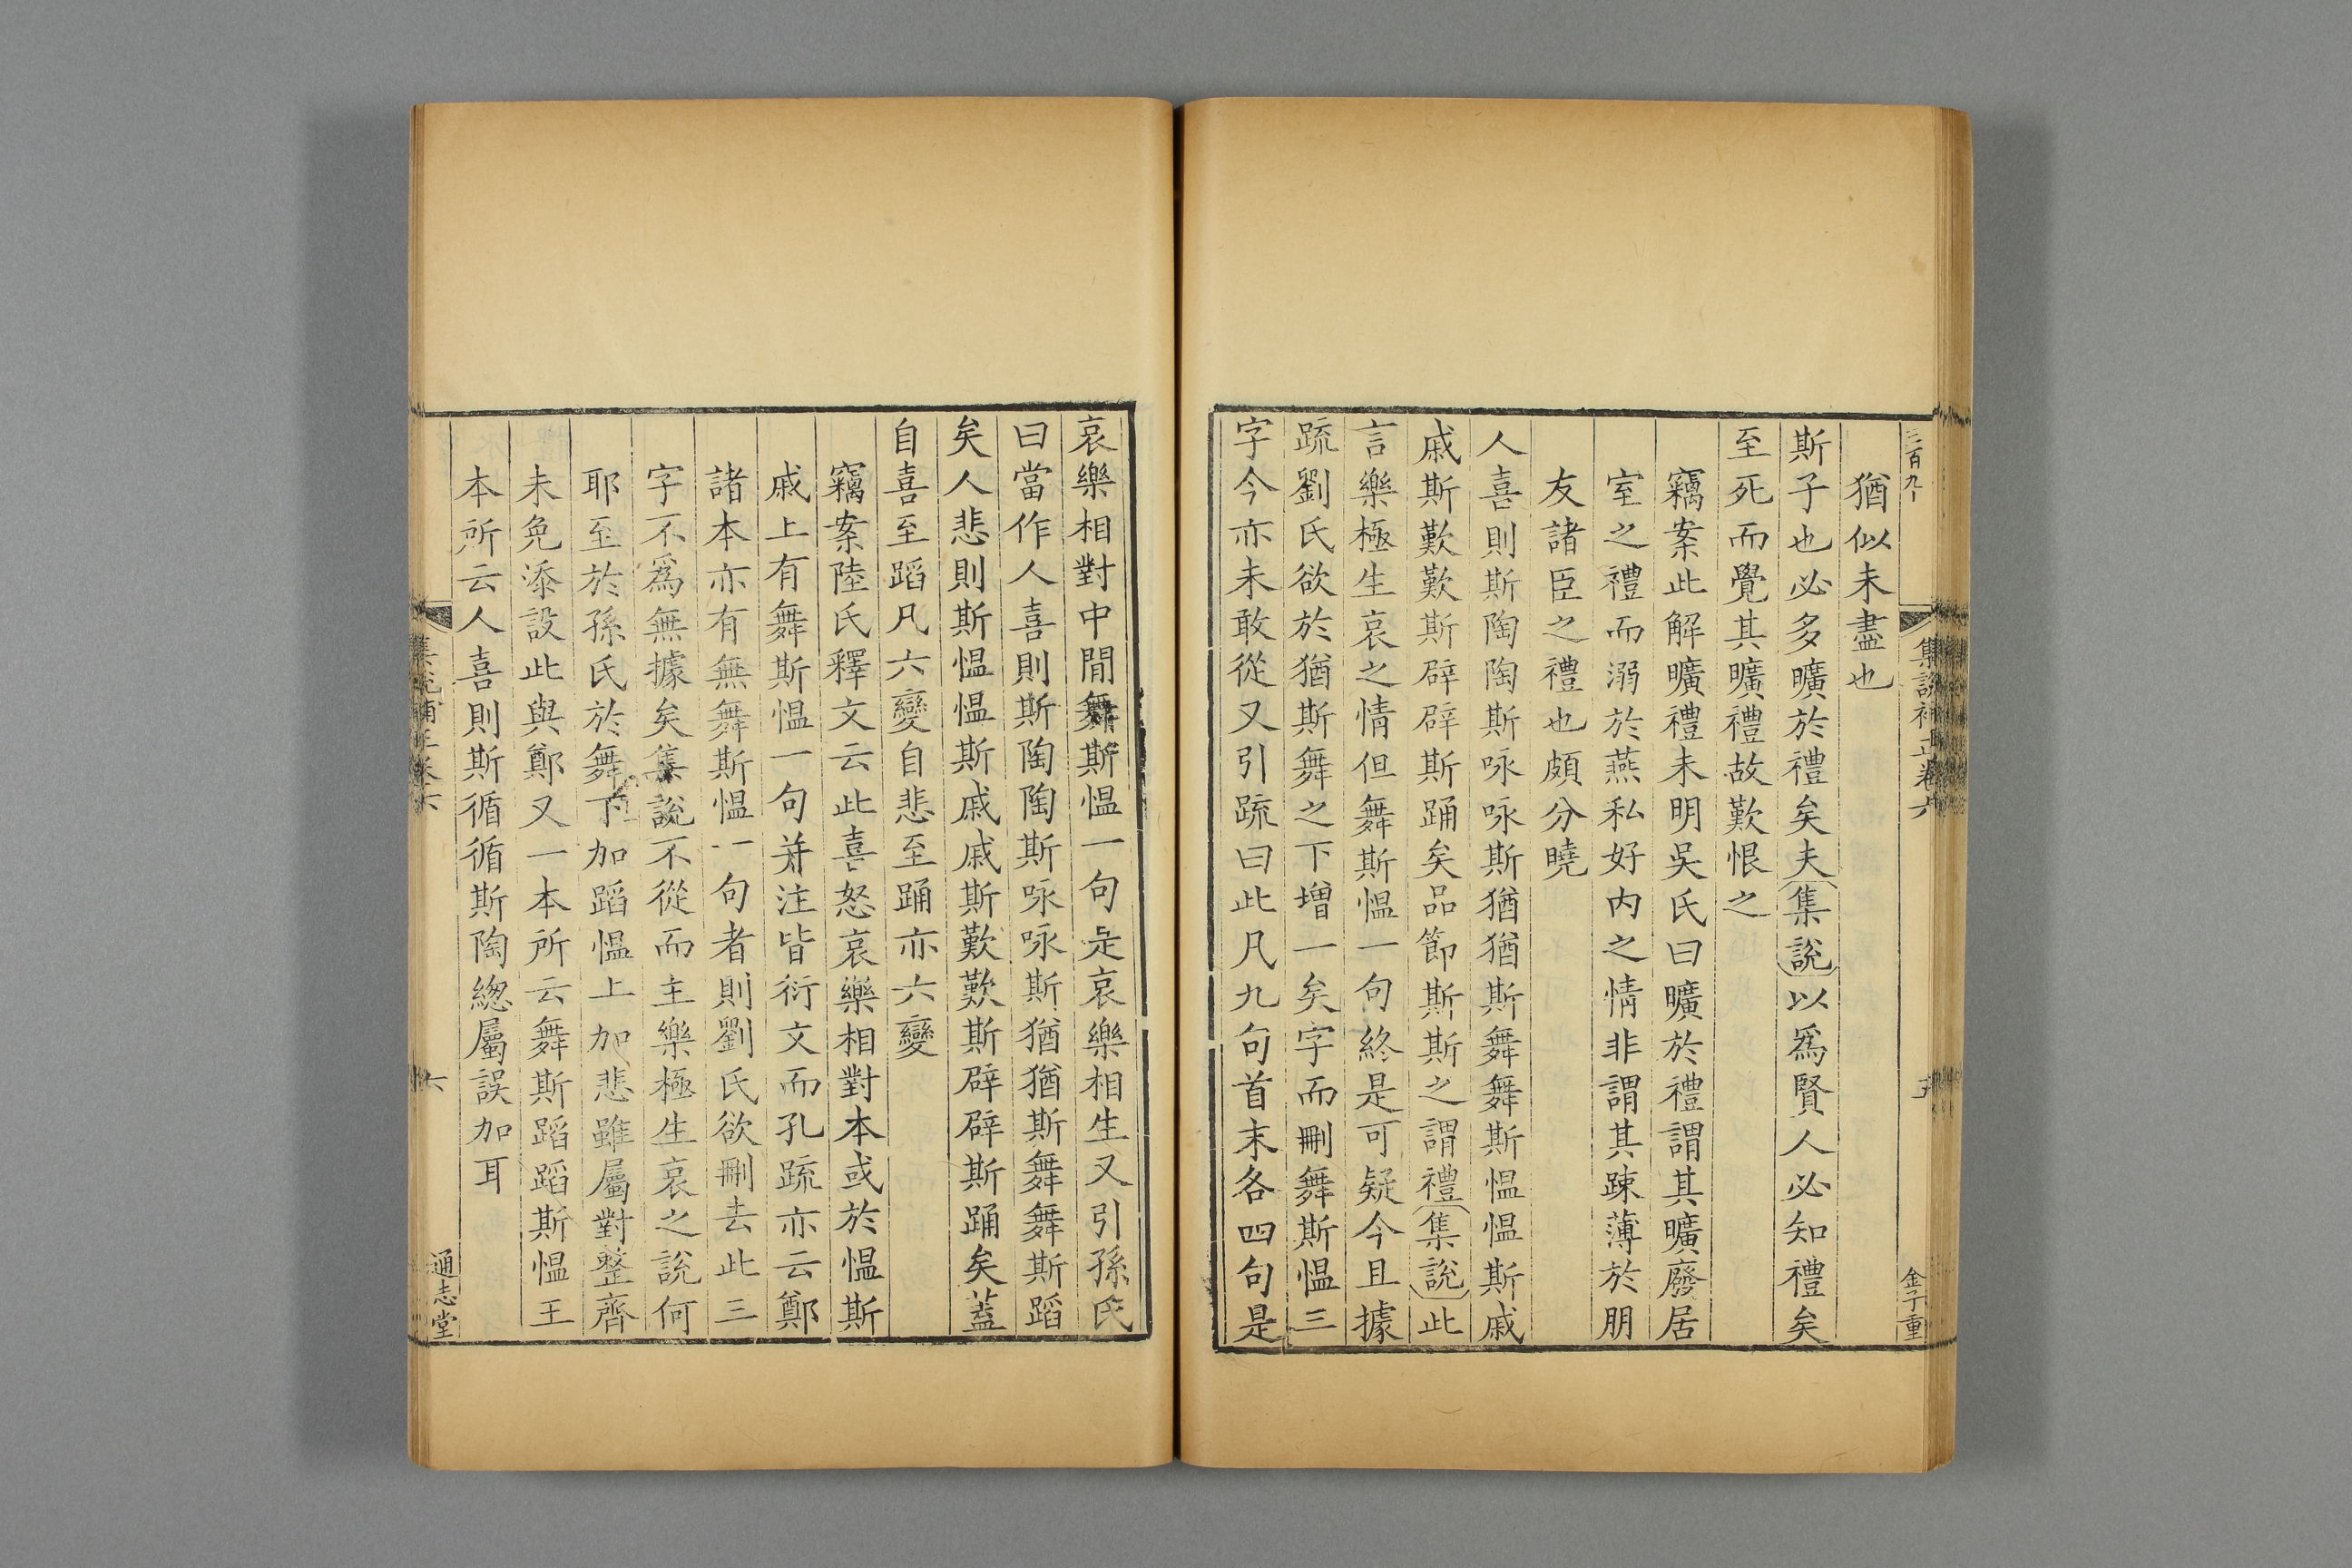 猶似未盡也
斯子也必多曠於禮矣夫集說以爲賢人必知禮矣
至死而覺其曠禮故歎恨之
竊案此解曠禮未明吳氏曰曠於禮謂其曠廢居
室之禮而溺於燕私好內之情非謂其踈薄於朋
友諸臣之禮也頗分曉
人喜則斯陶陶斯咏咏斯猶猶斯舞舞斯慍慍斯戚
戚斯歎歎斯辟辟斯踊矣品節斯斯之謂禮集說此
言樂極生哀之情但舞斯慍一句終是可疑今且據
疏劉氏欲於猶斯舞之下增一矣字而刪舞斯慍三
字今亦未敢從又引疏曰此凡九句首末各四句是
哀樂相對中間舞斯慍一句是哀樂相生又引孫氏
曰當作人喜則斯陶陶斯咏咏斯猶猶斯舞舞斯蹈
矣人悲則斯慍慍斯戚戚斯歎歎斯辟辟斯踊矣蓋
自喜至蹈凡六變自悲至踊亦六變
竊案陸氏釋文云此喜怒哀樂相對本或於慍斯
戚上有舞斯慍一句并注皆衍文而孔疏亦云鄭
諸本亦有無舞斯慍一句者則劉氏欲刪去此三
字不爲無據矣集說不從而主樂極生哀之說何
耶至於孫氏於舞下加蹈慍上加悲雖屬對整齊
未免添設此與鄭又一本所云舞斯蹈蹈斯慍王
本所云人喜則斯循循斯陶緫屬誤加耳
集說補正卷六
五
金子重
六
通志堂